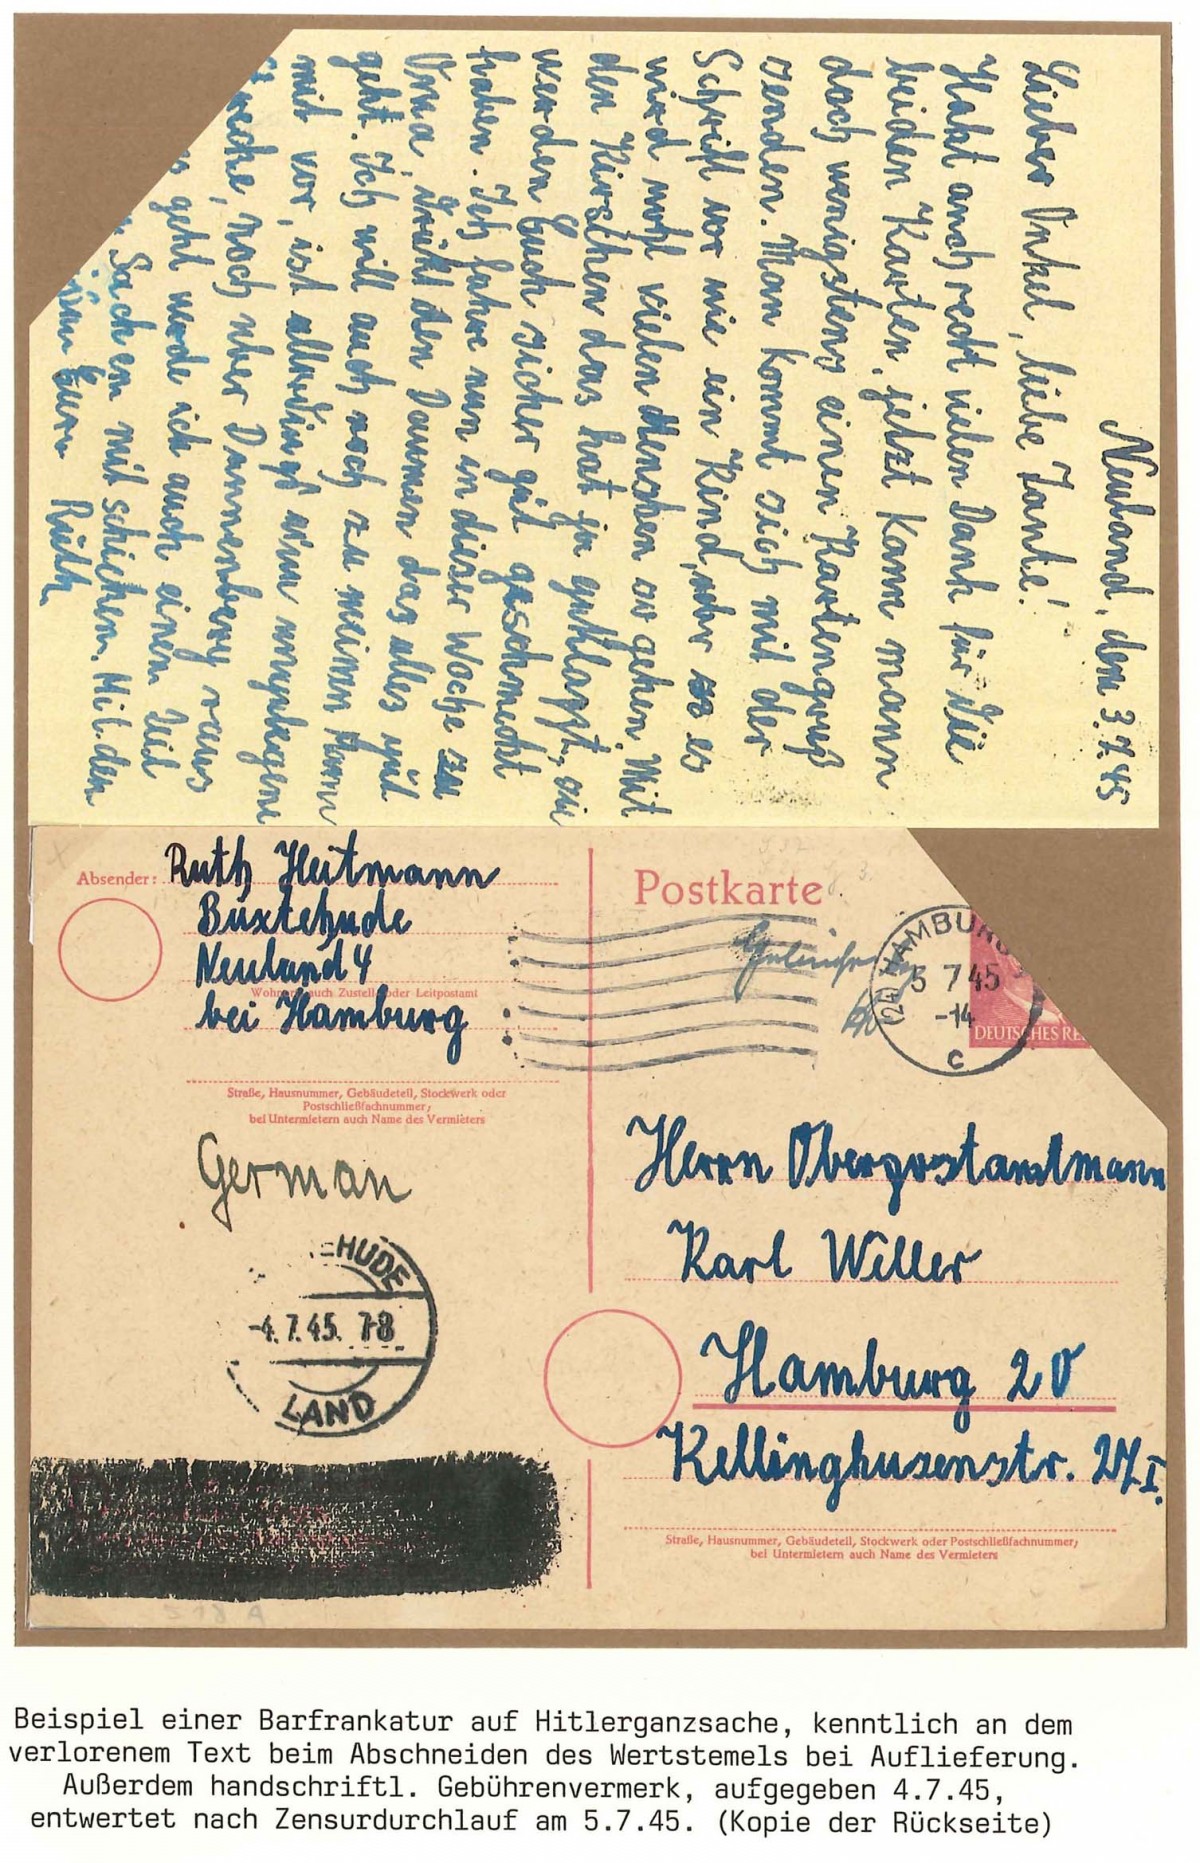 Neuland, den 3.7.45
Lieber Onkel, liebe Tante!
Habt auch recht vielen Dank für die
beiden Karten, jetzt kann mann
doch wenigstens einen Kartengruß
senden. Man kommt sich mit der
Schrift vor wie ein Kind, aber so es
wird wohl vielen Menschen so gehen. Mit
den Kirschen das hat ja geklappt, sie
werden Euch sicher gut geschmeckt
haben. Ich fahre nun in dieser Woche zu
Oma, drükt den Daumen das alles gut
geht. Ich will auch noch zu meinen
mit vor, ist allerdings eine
recke, noch über Dannenberg raus
geht werde ich auch einen
Sack en mit schicken. Mit den
Eure Ruth
Absender: Ruth Heitmann
Buxtehude
Neuland 4
Wohnort, auch Zustell- oder Leitpostamt
bei Hamburg
Straße, Hausnummer, Gebäudeteil, Stockwerk oder
Postschließfachnummer;
bei Untermietern auch Name des Vermieters
German
HUDE
-4.7.45. 7-8
LAND
Postkarte
(24) HAMBURG
5 7 45
-14
C
DEUTSCHES RE
Herrn
Karl Weller
Hamburg 20
Kellinghusenstr. 27 I.
Straße, Hausnummer, Gebäudeteil, Stockwerk oder Postschließfachnummer;
bei Untermietern auch Name des Vermieters
Beispiel einer Barfrankatur auf Hitlerganzsache, kenntlich an dem
verlorenem Text beim Abschneiden des Wertstemels bei Auflieferung.
Außerdem handschriftl. Gebührenvermerk, aufgegeben 4.7.45,
entwertet nach Zensurdurchlauf am 5.7.45. (Kopie der Rückseite)